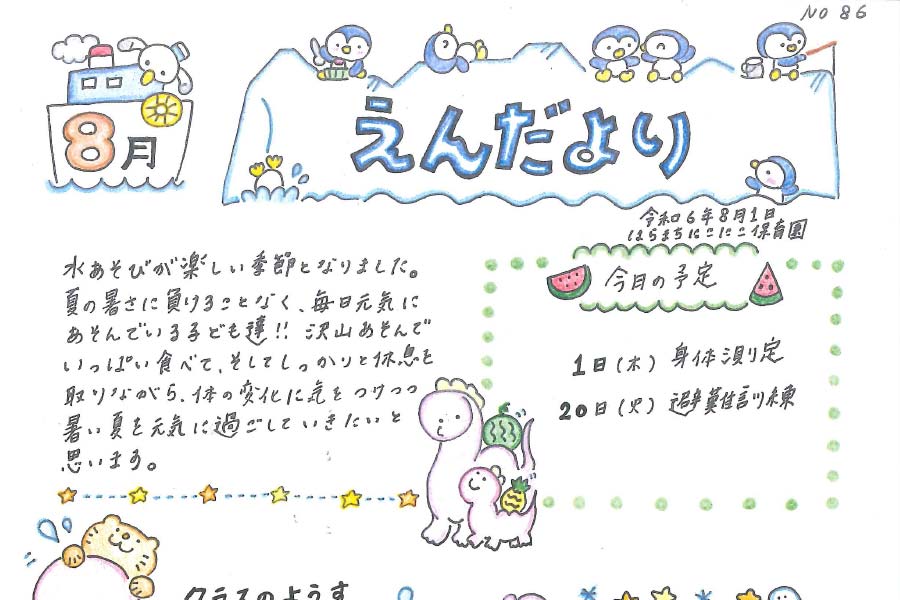 NO 86
8月
えんだより
令和6年8月1日
はらまちにこにこ保育園
水あそびが楽しい季節となりました。
夏の暑さに負けることなく、毎日元気に
あそんでいる子ども達!! 沢山あそんで
いっぱい食べて、そしてしっかりと休息を
取りながら、体の変化に気をつけつつ
暑い夏を元気に過ごしていきたいと
思います。
今月の予定
1日(木) 身体測定
20日(火) 避難訓練
クラスのようす